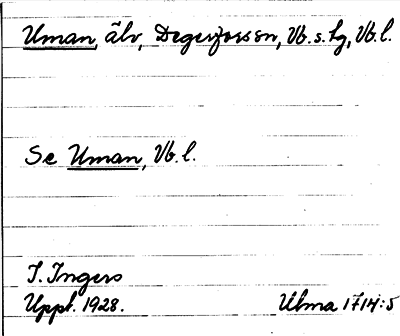 Uman, älv, Degerforssn, Vb.s.hg, Vb.l.
Se Uman, Vb.l.
I. Ingers
Uppt. 1928.
Ulma 1714:5